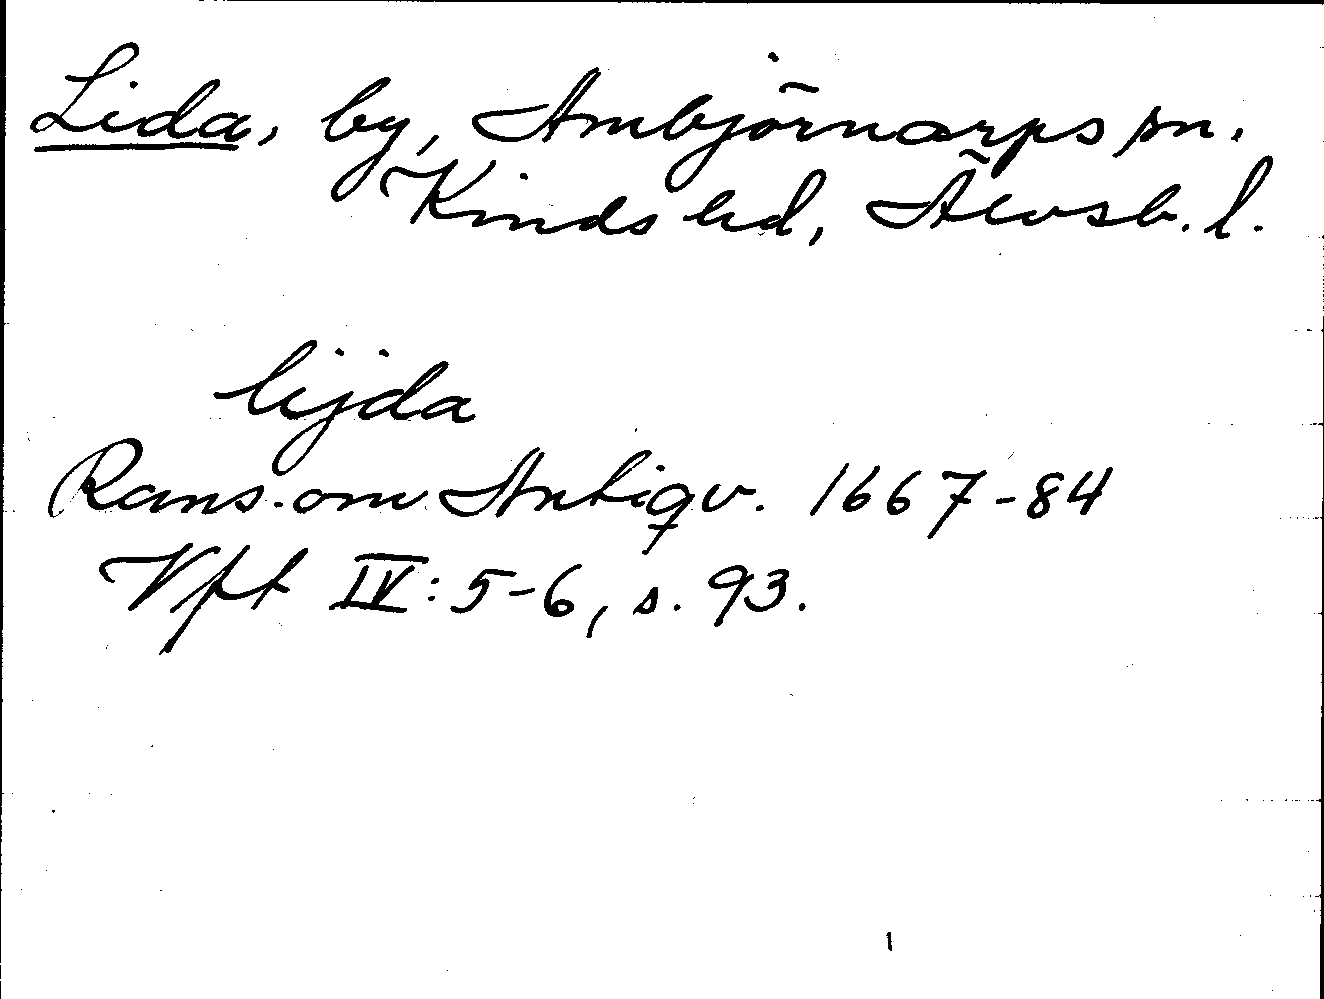 Lida, by, Ambjörnarps sn.
Kinds hd, Älvsb. l.
lijda
Rans. om Antiqv. 1667-84
Vft IV: 5-6, s. 93.
1